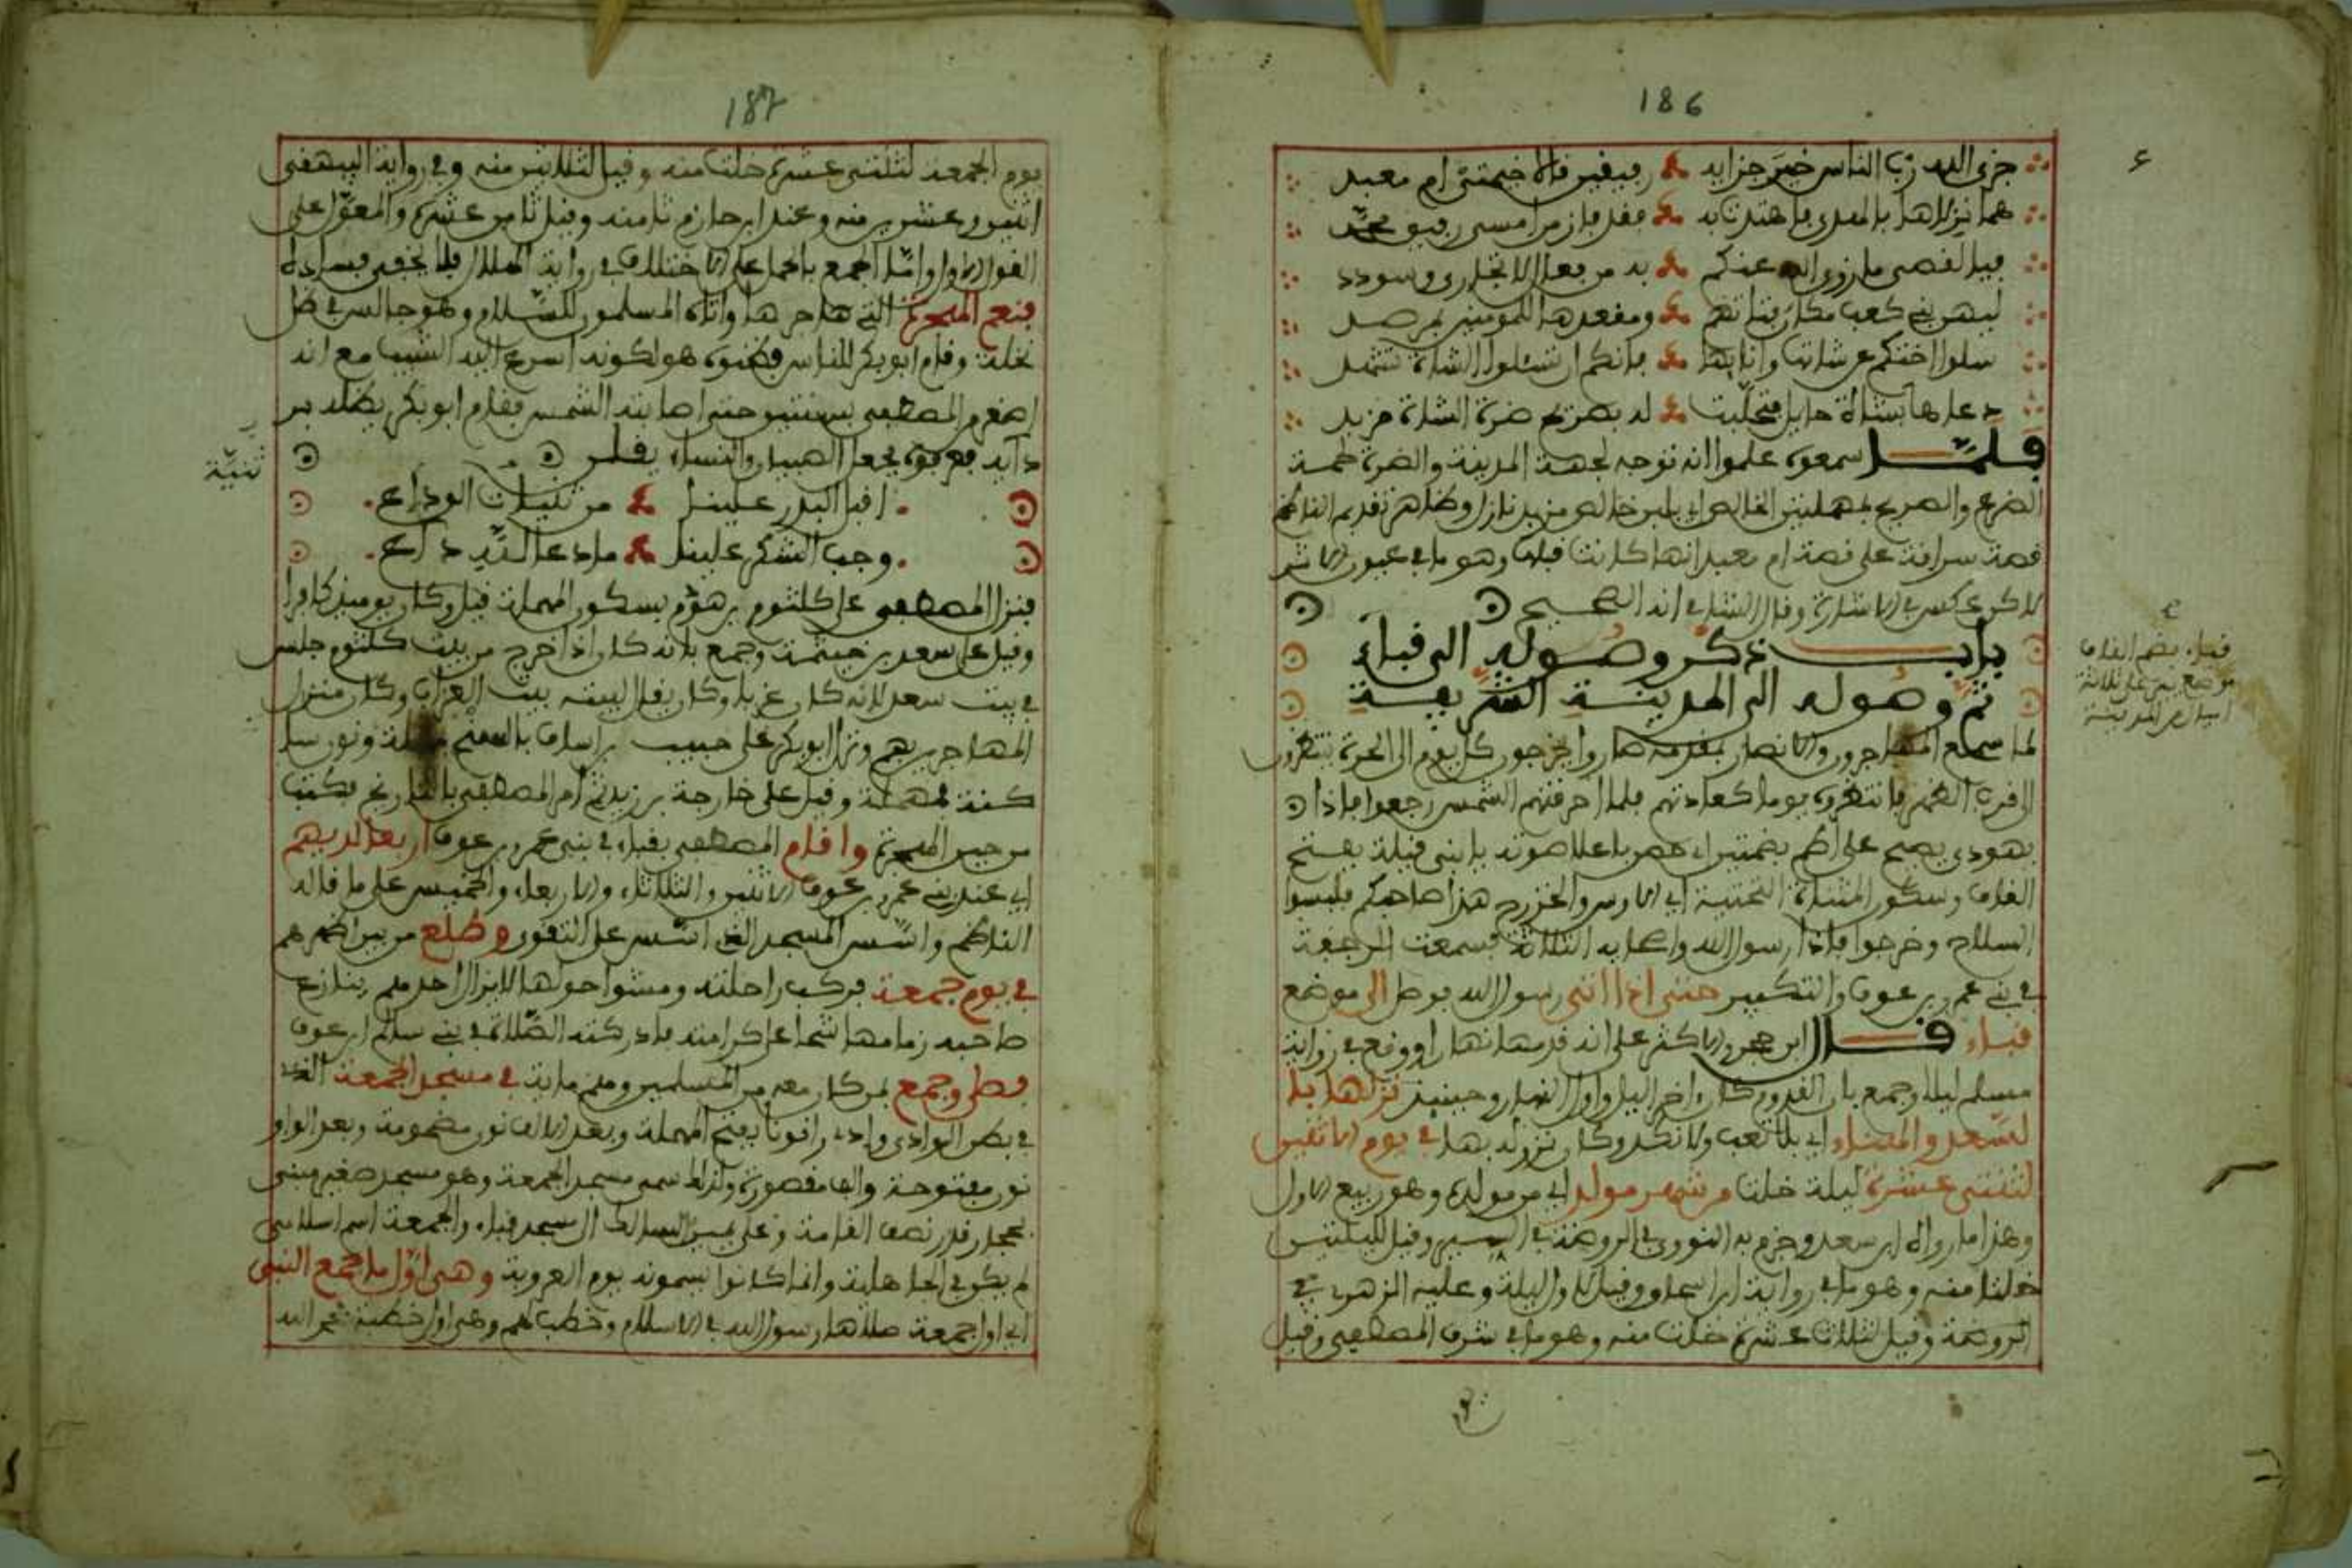 186
جزى الله رب الناس خير جزايه رفيقين قالا خيمتي ام معبد
هما نزلاها بالهدى فاهتدت به فقد فاز من امسى رفيق محمد
فيا لقصي ما زوى الله عنكم به من فعال لا تجارى وسودد
ليهن بني كعب مكان فتاتهم ومقعدها للمومنين بمرصد
سلوا اختكم عن شاتها وانايها فانكم ان تسئلوا الشاة تشهد
دعاها بشاة حايل فتحلبت له بصريح ضرة الشاة مزبد
فلمّا سمعوه علموا انه توجه لجهة المدينة والضرة لحمة
الضرع والصريح بمهملتين الخالص اي بلبن خالص مزبد نازل وظاهر تقديم الناظم
قصة سراقة على قصة ام معبد انها كانت قبلها وهو ما في عيون الاثر
لاكن عكس في الاشارة وقال الشامي انه الصحيح
باب ذكر وصوله الى قباء
ثم وصوله الى المدينة الشريفة
لما سمع المهاجرون والانصار بمقدمه صاروا يخرجون كل يوم الى الحرة ينتظرون
الى قرب الظهر فانتظروه يوما كعادتهم فلما احرقتهم الشمس رجعوا فاذا
يهودي يصيح على اطم بضمتين اي حصن باعلا صوته يا بني قيلة بفتح
القاف وسكون المثناة التحتية اي الاوس والخزرج هذا صاحبكم فلبسوا
السلاح وخرجوا فاذا رسول الله واصحابه الثلاثة فسمعت الرجفة
في بني عمرو بن عوف والتكبير حتى اذا اتى رسول الله فوصل الى موضع
قباء قال ابن حجر والاكثر على انه قدمها نهارا ووقع في رواية
مسلم ليلا وجمع بان القدوم كان اخر الليل واول النهار وحينيذ نزلها با
لسعد والهناء اي بلا تعب ولا نكد وكان نزوله بها في يوم الاثنين
لثنتي عشرة ليلة خلت من شهر مولد اي من مولده وهو ربيع الاول
وهذا ما رواه ابن سعد وجزم به النووي في الروضة في السير وقيل لليلتين
خلتا منه وهو ما في رواية ابن اسحاق وقيل لاول ليلة وعليه الزهري في
الروضة وقيل لثلاث عشرة خلت منه وهو ما في شرف المصطفى وقيل
قباء بضم القاف
موضع على ثلاثة
اميال من المدينة
187
يوم الجمعة لثنتي عشرة خلت منه وقيل لثلاثين منه وفي رواية البيهقي
اثنين وعشرين منه وعند ابن حازم ثامنه وقيل ثامن عشره والمعوّل على
القول الاول وامّا الجمع بالحمل على الاختلاف في رواية الهلال فلا يخفى فساده
فنعم الهجرة التي هاجرها واتاه المسلمون للسّلام وهو جالس في ظل
نخلة وقام ابو بكر للناس فظنوه هو لكونه اسرع اليه الشيب مع انه
اصغر والمصطفى يستتر حتى اصابته الشمس فقام ابو بكر يظله بر
دايه فعرفوه فجعل الصبيان والنساء يقلن
اقبل البدر علينا من ثنيات الوداع
وجب الشكر علينا ما دعا لله داع
ثنيّة
فنزل المصطفى على كلثوم بن هدم بسكون المهملة قيل وكان يوميذ كافرا
وقيل على سعد بن خيثمة وجمع بانه كان اذا خرج من بيت كلثوم جلس
في بيت سعد لانه كان عزبا وكان يقال لبيته بيت العزاب وكان منزل
المهاجرين بهم ونزل ابو بكر على حبيب بن اساف بالسنح ونون سا
كنة فمهملة وقيل على خارجة بن زيد ثم امر المصطفى بالتاريخ فكتب
من حين الهجرة واقام المصطفى بقباء في بني عمرو بن عوف اربعا لديهم
اي عند بني عمرو بن عوف الاثنين والثلاثاء والاربعاء والخميس على ما قاله
الناظم واسّس المسجد الذي اسّس على التقوى وطلع من بين اظهرهم
في يوم جمعة فركب راحلته ومشوا حولها لا يزال احدهم ينازع
صاحبه زمامها شحا على كرامته فادركته الصلاة في بني سالم ابن عوف
فصلى وجمع لمن كان معه من المسلمين وهم ماية في مسجد الجمعة الذي
في بطن الوادي وادي رانونا بفتح المهملة وبعد الالف نون مضمومة وبعد الواو
نون مفتوحة والف مقصورة ولذلك سمي مسجد الجمعة وهو مسجد صغير مبني
بحجارة قدر نصف القامة وعلى يمين السالك الى مسجد قباء والجمعة اسم اسلامي
لم يكن في الجاهلية وانما كانوا يسمونه يوم العروبة وهي اوّل ما جمع النبي
اي اول جمعة صلاها رسول الله في الاسلام وخطب لهم وهي اول خطبة فحمد الله